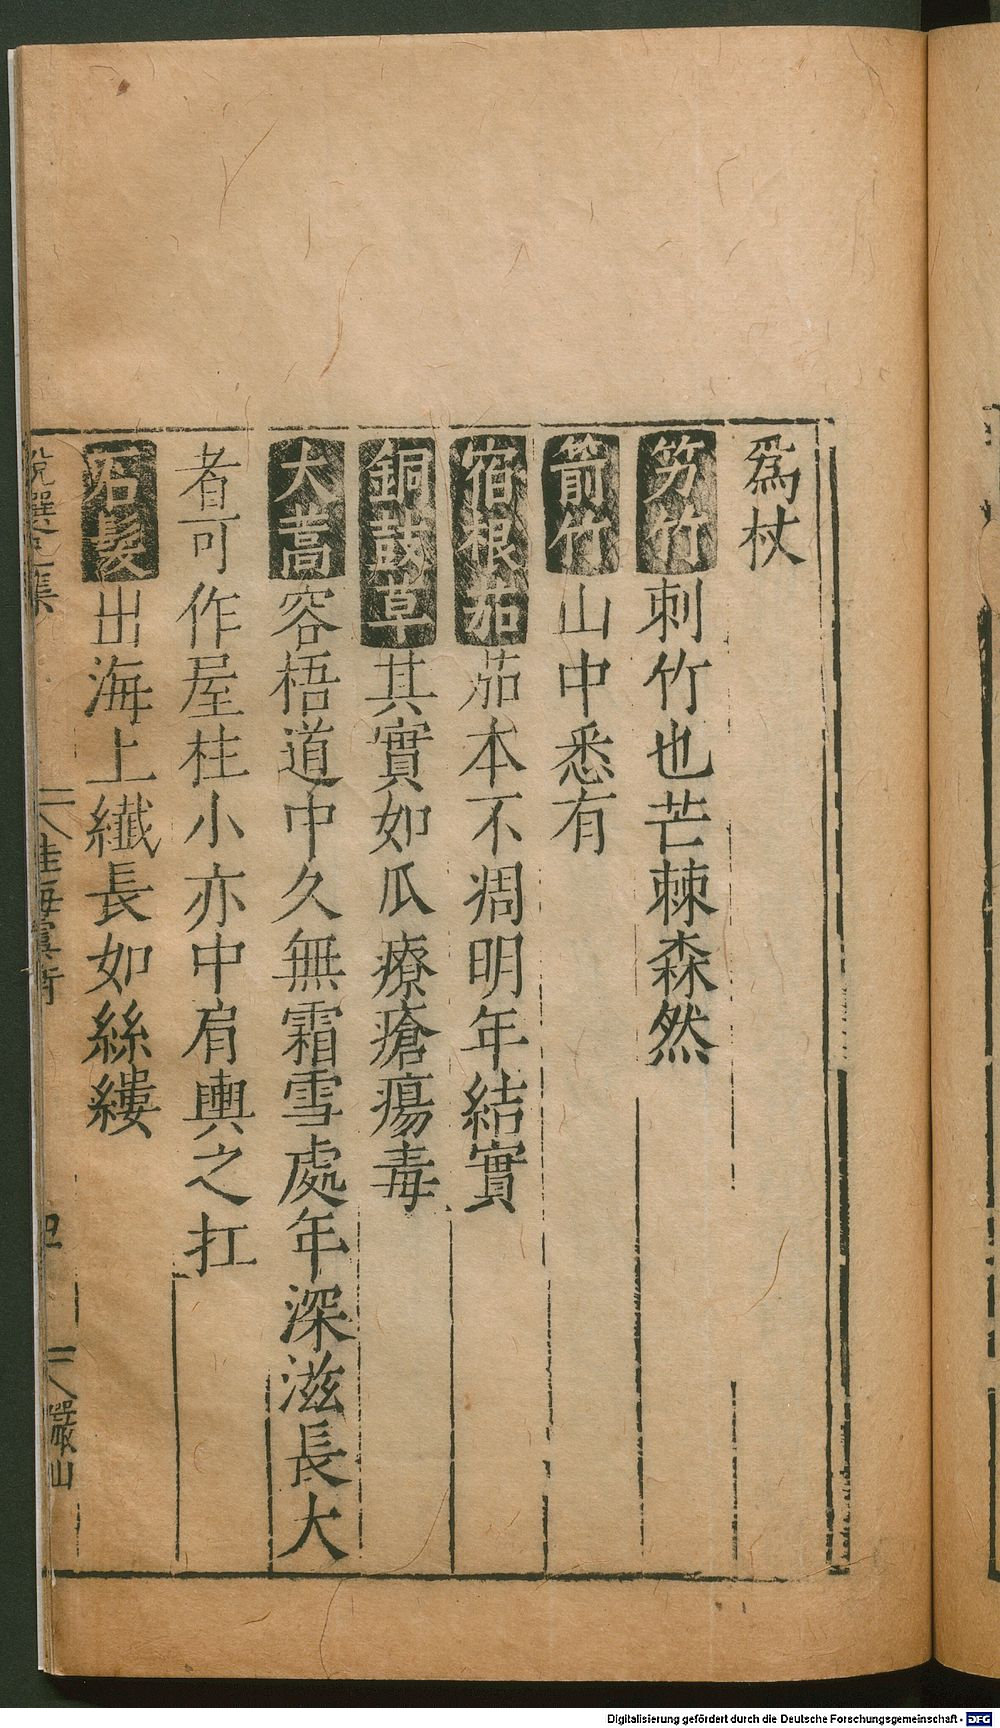 為杖
竻竹刺竹也芒棘森然
箭竹山中悉有
宿根茄茄本不凋明年結實
銅鼓草其實如瓜療瘡瘍毒
大蒿容梧道中久無霜雪處年深滋長大
者可作屋柱小亦中肩輿之扛
石髮出海上纖長如絲縷
說選己集
桂海虞衡
嚴山
Digitalisierung gefördert durch die Deutsche Forschungsgemeinschaft - DFG